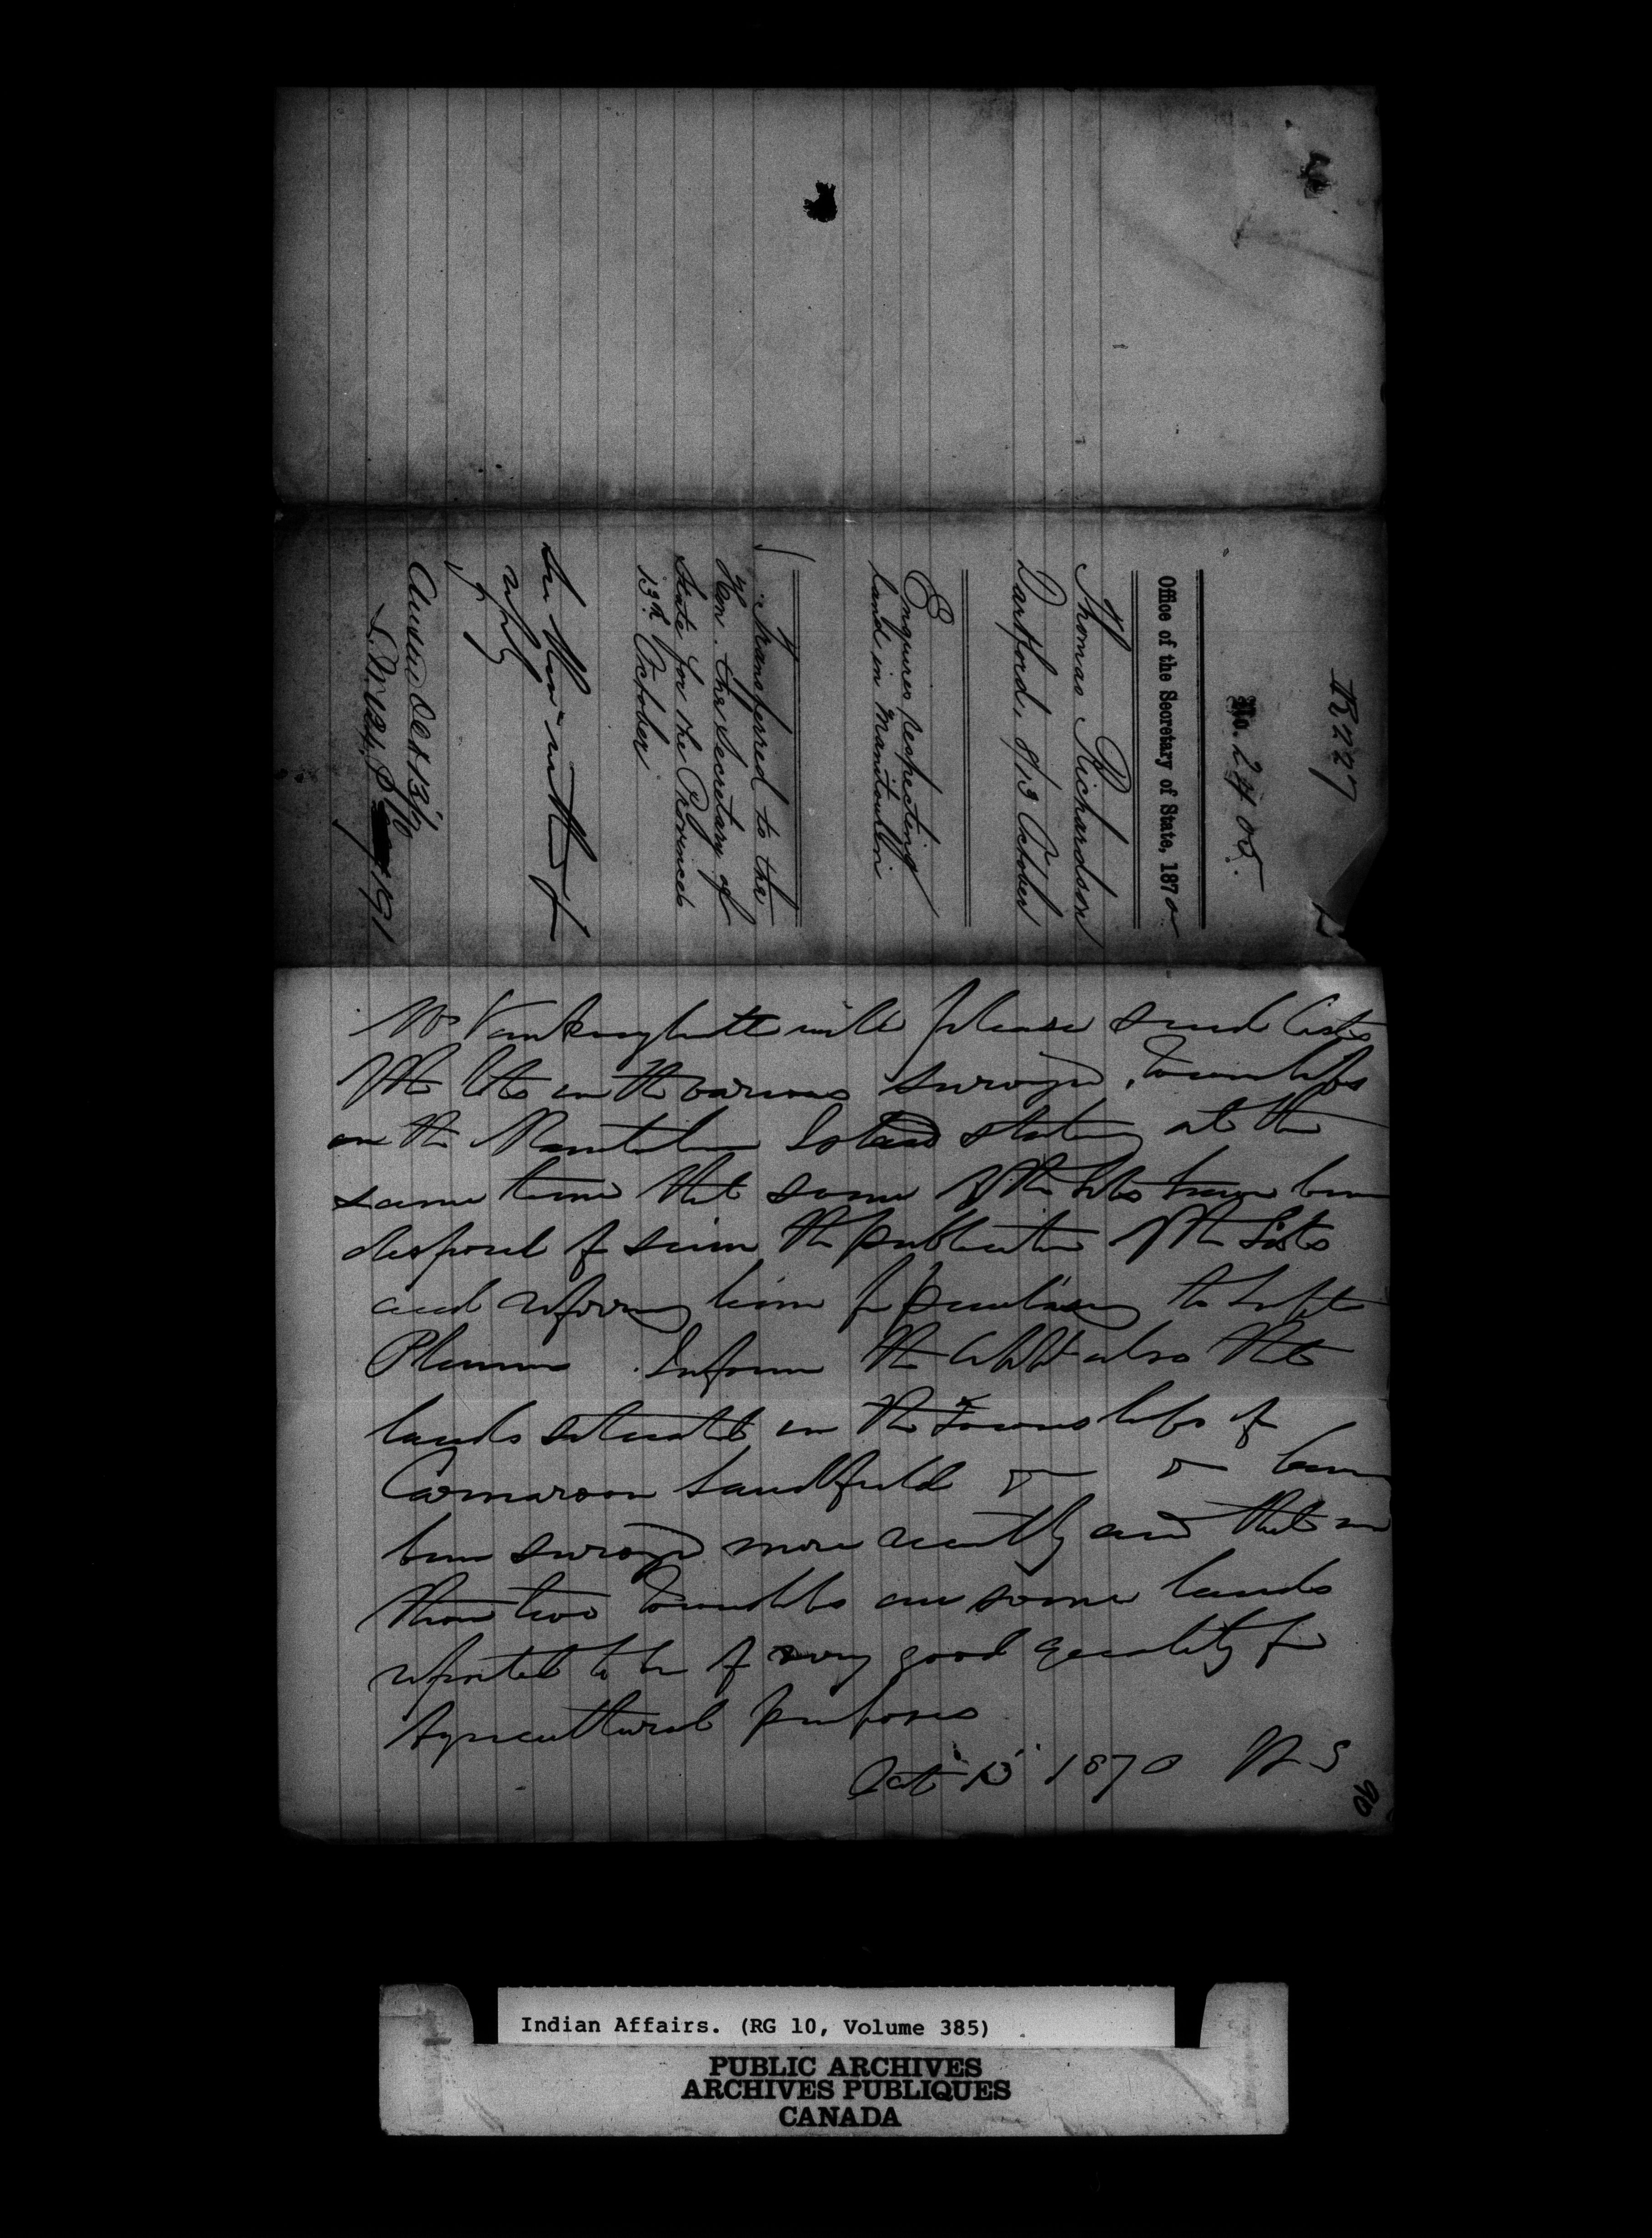 R227
No. 2405
Office of the Secretary of State, 1870
Thomas Richardson
Dartford, 8/13 October
Enquires respecting
land in Manitoulin
Transferred to the
Hon. the Secretary of
State for the Provinces
13th October
See Min. within for
reply
Ansd Oct 13/70
Mr Vankoughnett will please send Lists
of the lots in the various surveyed Townships
on the Manitoulin Island stating at the
same time that some of the lots have been
disposed of since the publication of the Lists
and referring him for purchasing to Supt
Plummer. Inform the applt also that
lands situated in the Townships of
Carnarvon Sandfield & & have
been surveyed more recently and that in
those two Townships are some lands
reported to be of very good quality for
Agricultural purposes
Oct 13 1870
90
Indian Affairs. (RG 10, Volume 385)
PUBLIC ARCHIVES
ARCHIVES PUBLIQUES
CANADA